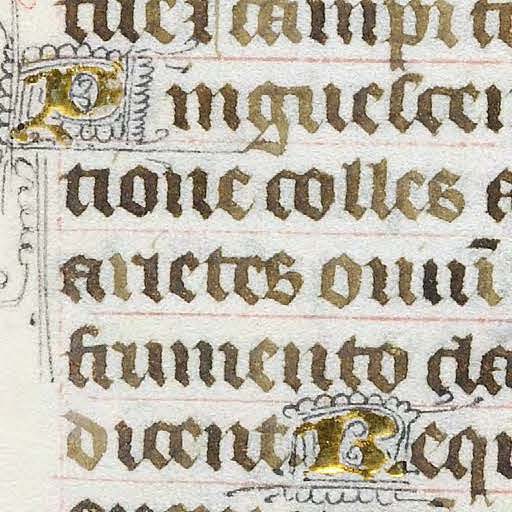 tue⁊ campi tu
Pinguescen
tione colles a
arietes ouiū
frumento cla
dicent Requ